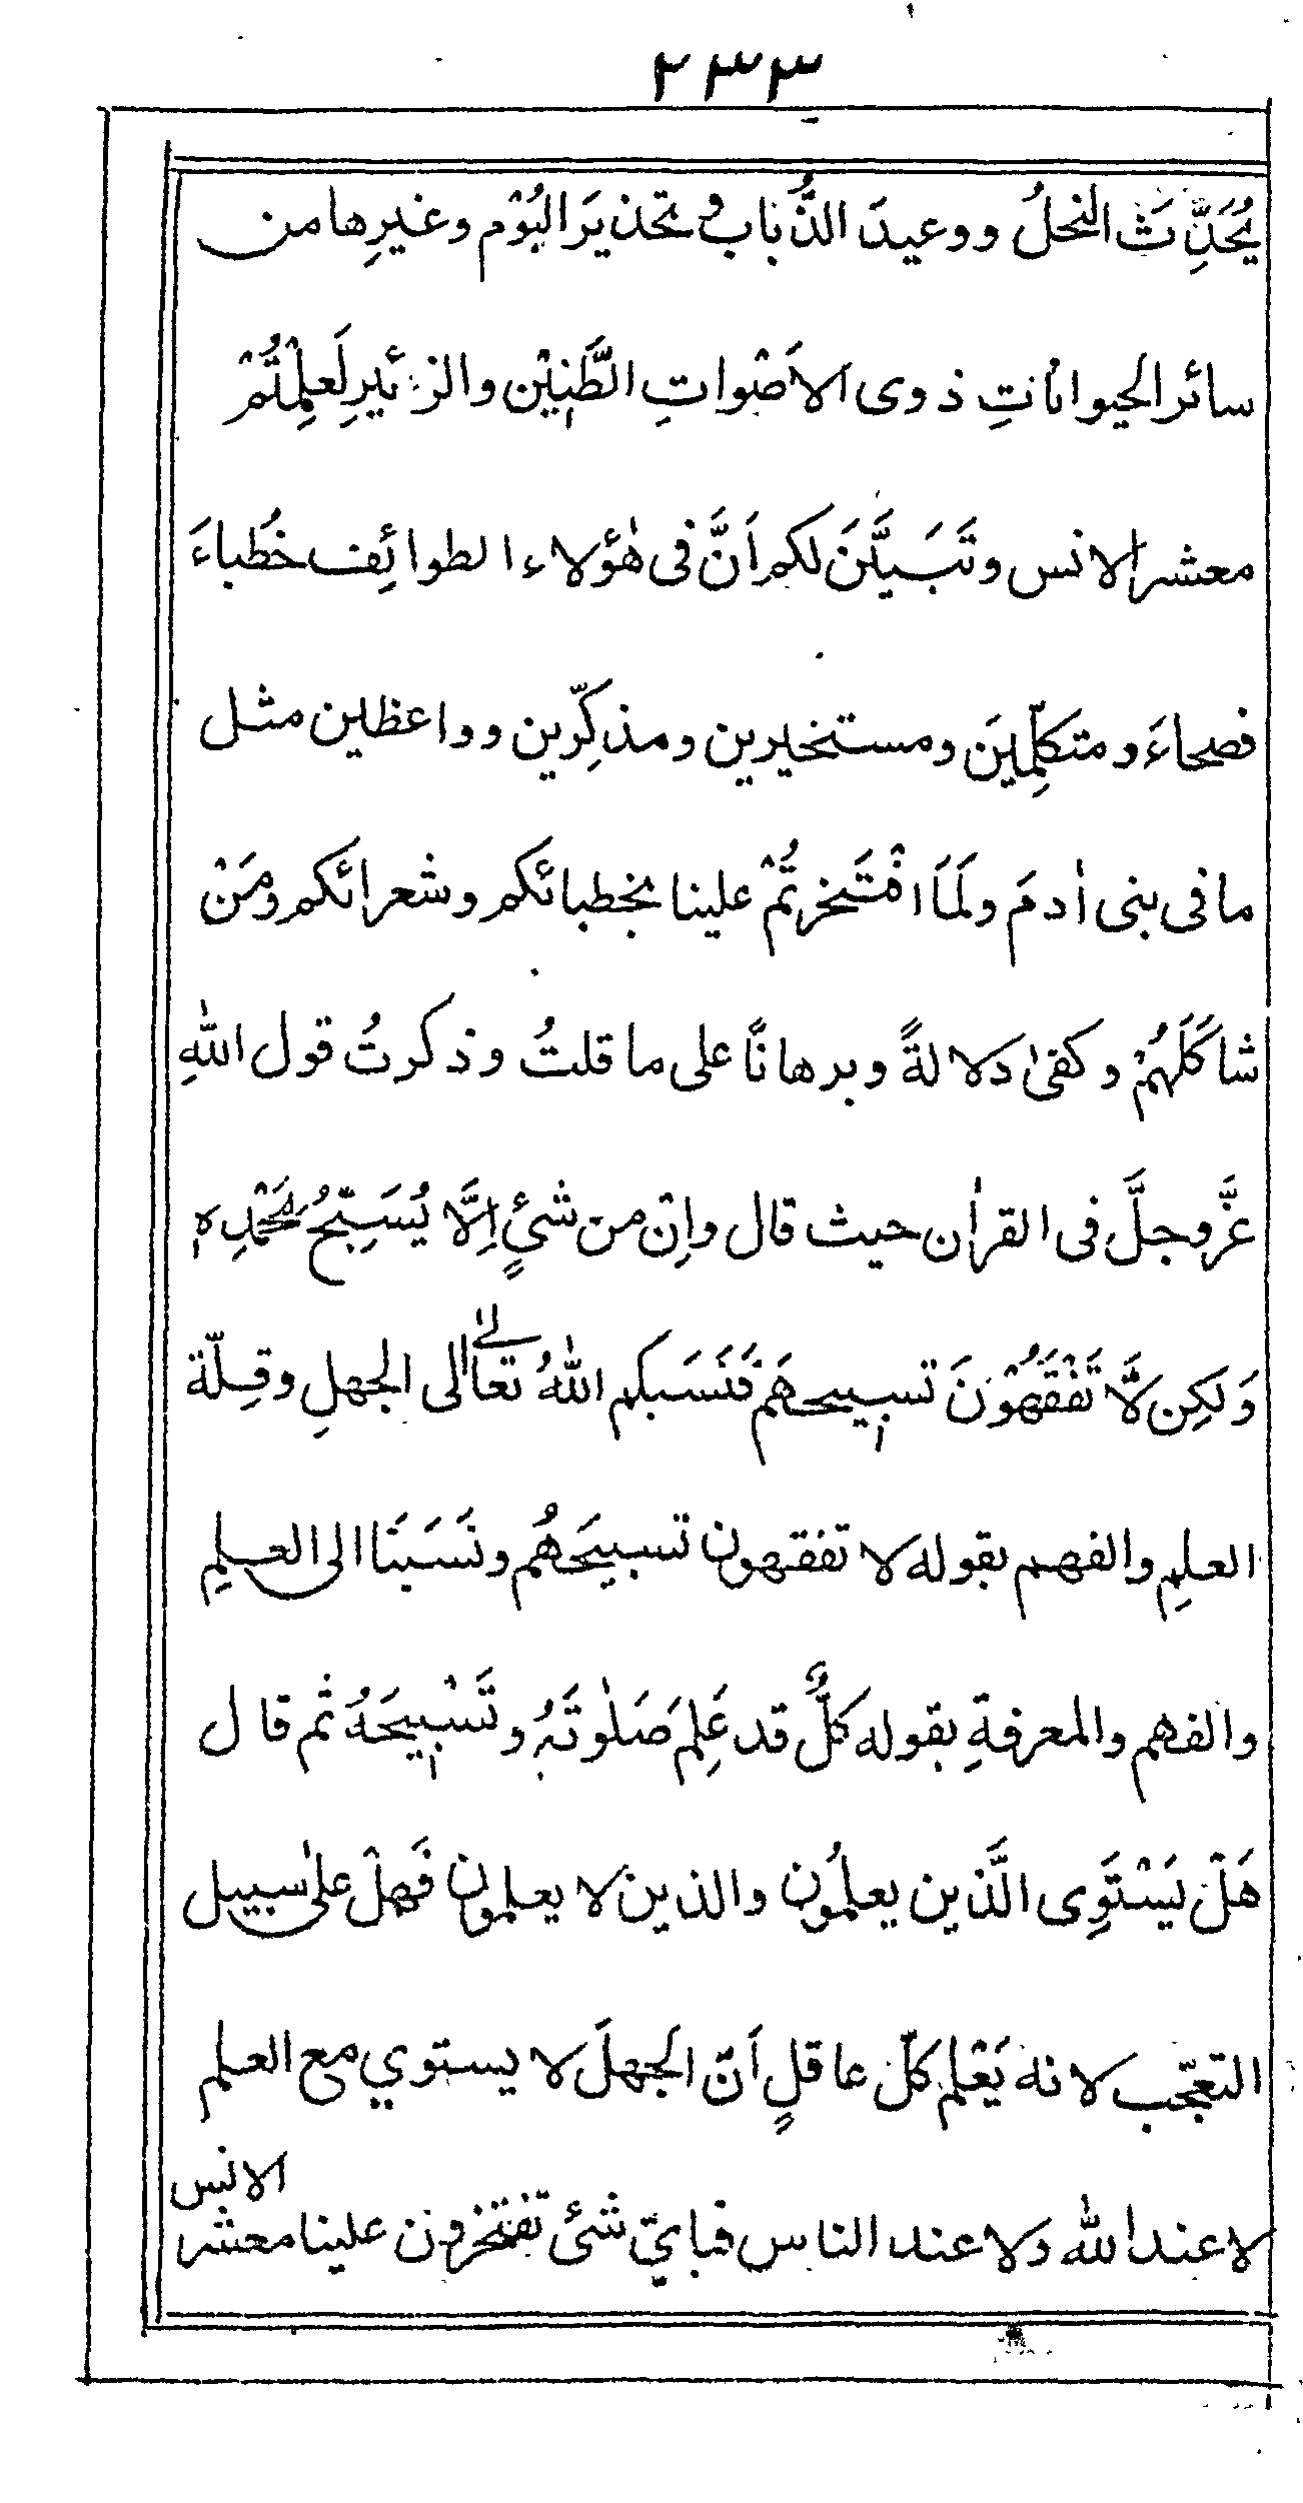 ٢٣٣
يُحَدِّثَ النحلُ ووعيدَ الذُّبابِ وتحذيرَ البُوْم وغيرِها من
سائر الحيواناتِ ذوى الاَصْواتِ الطَّنِيْن والزئيرِ لَعلِمْتُمْ
معشر الانس وتَبَيَّنَ لكم اَنَّ فى هٰؤلاء الطوائِف خُطباءَ
فصحاءَ ومتكلِّمِينَ ومستخيرين ومذكِّرين وواعظين مثل
ما فى بنى اٰدمَ ولَمَا افْتَخرتُمْ علينا بخطبائكم وشعرائكم ومَنْ
شاكَلَهُمْ وكفىٰ دلالةً وبرهانًا على ما قلتُ وذكرتُ قول اللهِ
عَزَّ وجلَّ فى القراٰن حيث قال واِنْ من شئٍ اِلَّا يُسَبِّحُ بِحَمْدِه
وَلكِن لَّا تَفْقَهُوْنَ تسبيحهَم فَنَسَبكم اللهُ تعالٰى الى الجهلِ وقِلّة
العلِم والفهم بقوله لا تفقهون تسبيحَهُم ونَسَبَنَا الى العلِم
والفهم والمعرفةِ بقوله كلٌّ قد عَلِمَ صَلٰوتَهُ وتَسْبِيحَهُ ثم قال
هَلْ يَسْتَوِى الَّذين يعلمُون والذين لا يعلمون فَهلْ علىٰ سبيل
التعجّب لانه يَعْلم كلّ عاقلٍ اَنّ الجهلَ لا يستوي مع العلم
لا عند الله ولا عند الناس فبايّ شئ تفتخرون علينا معشر
الانس